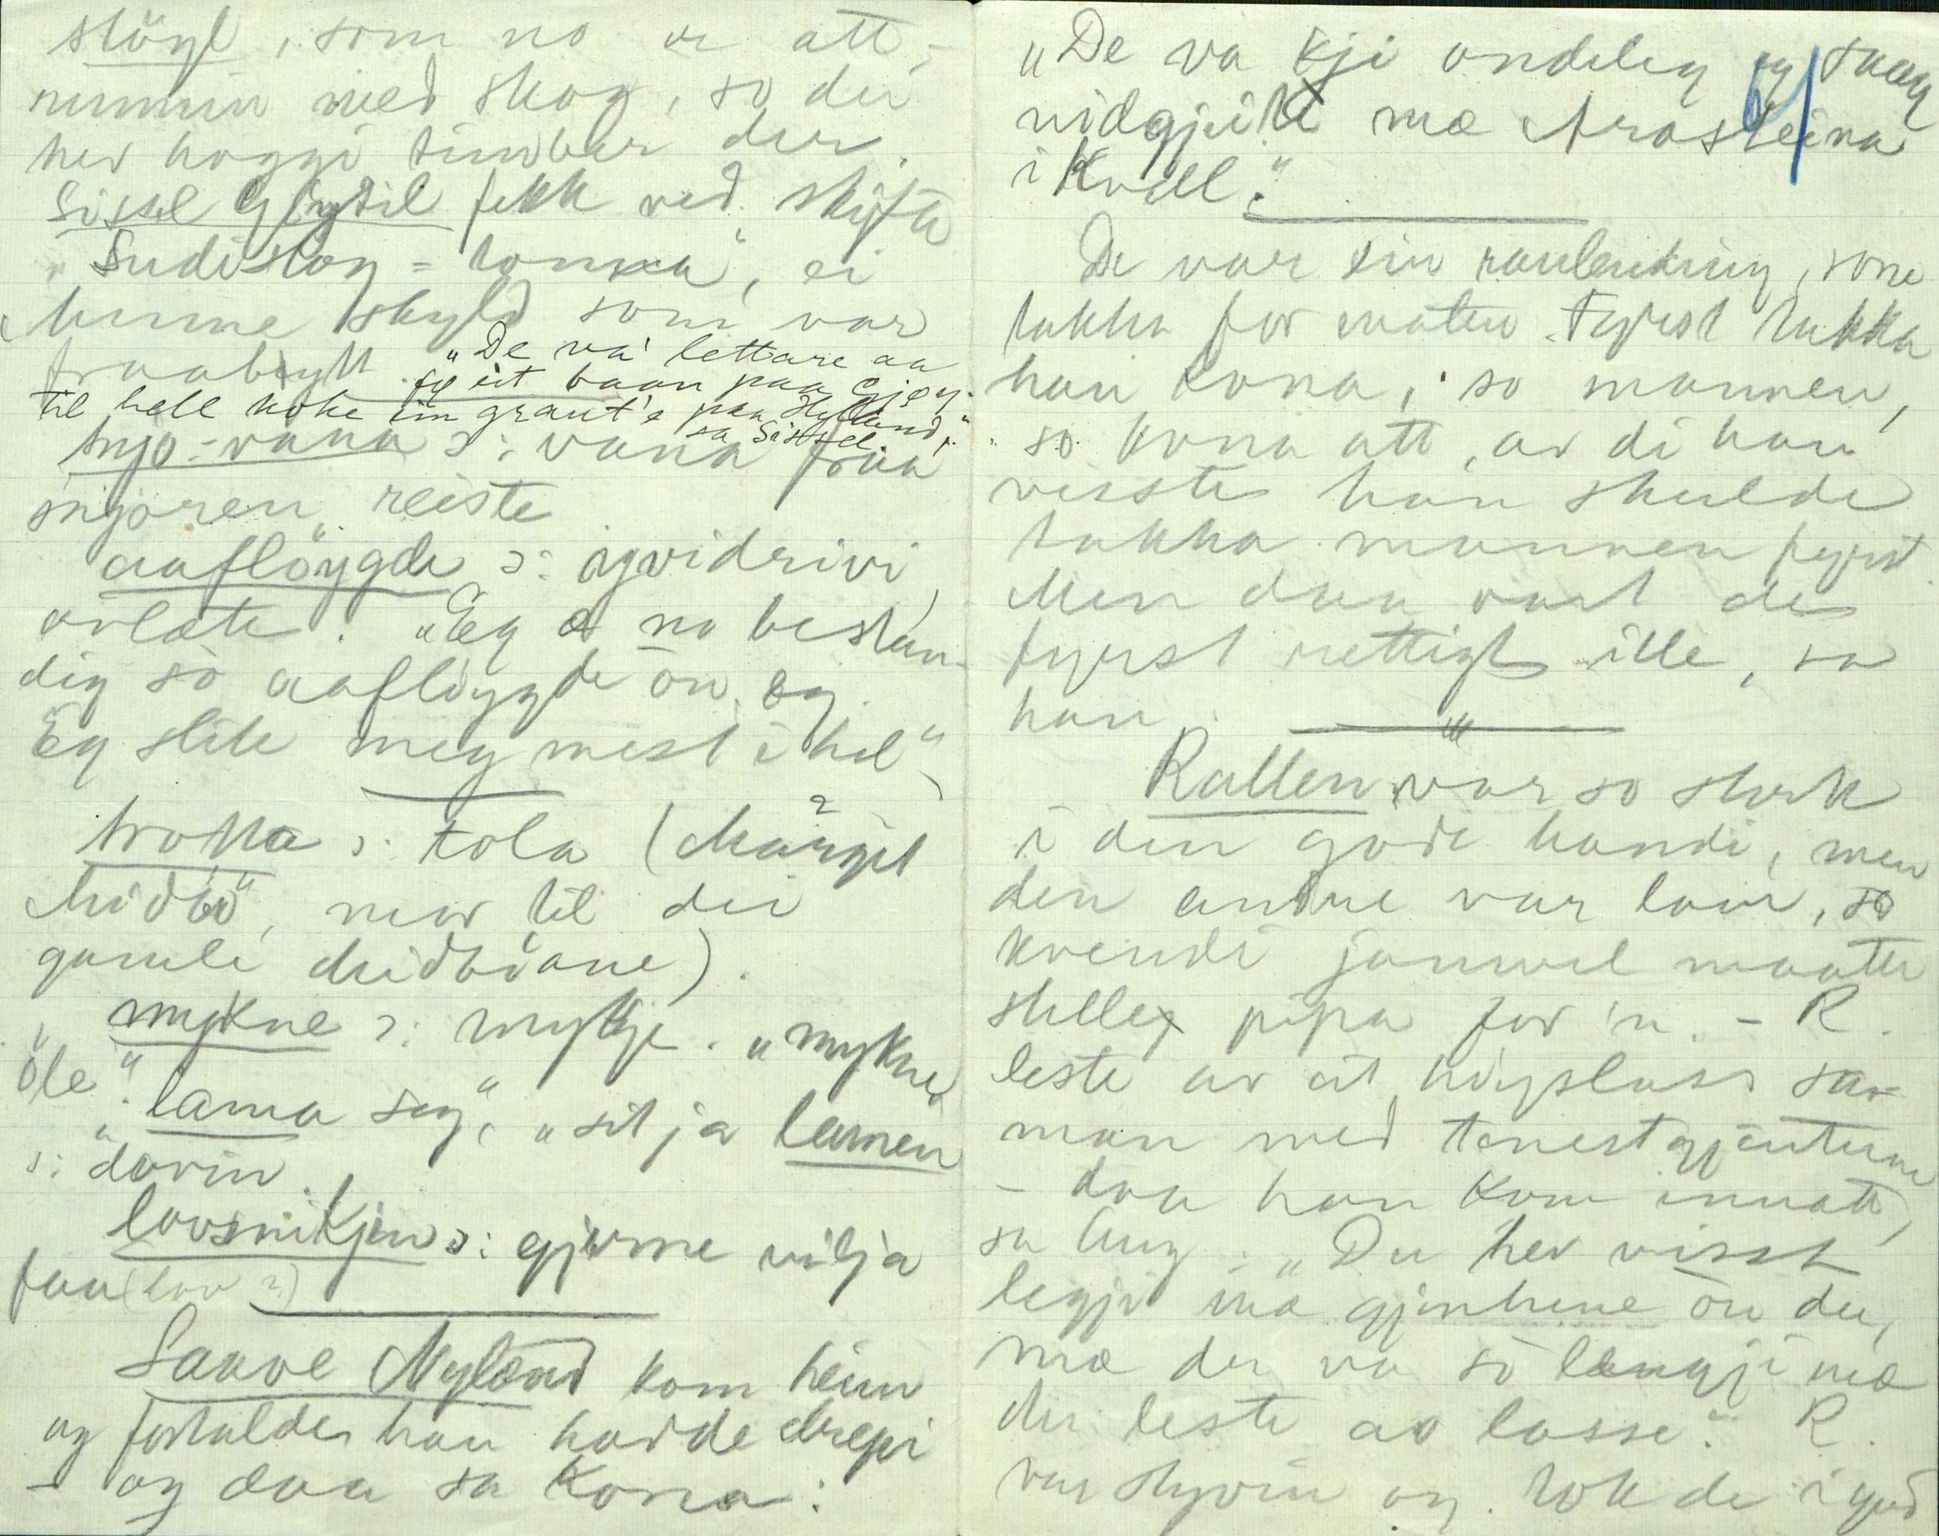 støyl, som no er att,
runnin med skog, so dei
hev hoggi timber der.
Sissel Glytil fekk ved skifta
"Sudistog = tonna", ei
kunne skyld som var
fraabytt. "De va' lettare aa
fø eit baan paa Øjøy.
til hell koke ein graut'e paa Hylland",
sa Sissel.
snjo-vana ɔ: vana fraa
snjoren reiste
aafløygde ɔ: ogvidrivi,
orlæte. "Eg æ no bestan-
dig so aafløygde ön, eg
Eg slite meg mest i hel"
trotta ɔ: tola (Margit
Midbö", mor til dei
gamle Midböane).
mykne ɔ: mykje. "mykne
öle".
"lama seg", "sitja lamen
ɔ: dovin.
lovsnikjin ɔ: gjerne vilja
faa (lov?)
Saave Nyland kom heim
og fortalde han hadde drepi
- og daa sa Kona:
"De va kji ondeleg eg saag
nidgjiti mæ Arosteina
i Kvell."
De var ein raulending, som
takka for maten. Fyrst takka
han kona, so mannen,
so kona att, av di han
visste han skulde
takka mannen fyrst.
Men daa vart de
fyrst rettigt ille, sa
han.
Rallen var so sterk
i den gode handi, men
den andre var lami, so
kvendi jamvel maatte
stelle pipa for 'n. - R.
leste av eit höyslass sa-
man med tenestgjentunne
- daa han kom innatt,
sa Aug. "Du hev visst
legji mæ gjentene ön du,
mæ der va so længji mæ
du leste av lasse." R.
var skyvin og tok de i god